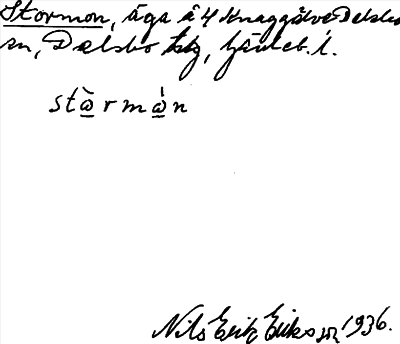 Stormon, äga å 4 Knaggälve Delsbo
sn, Delsbo tg, Gävleb. l.
stàrmàn
Nils Erik Eriksson 1936.